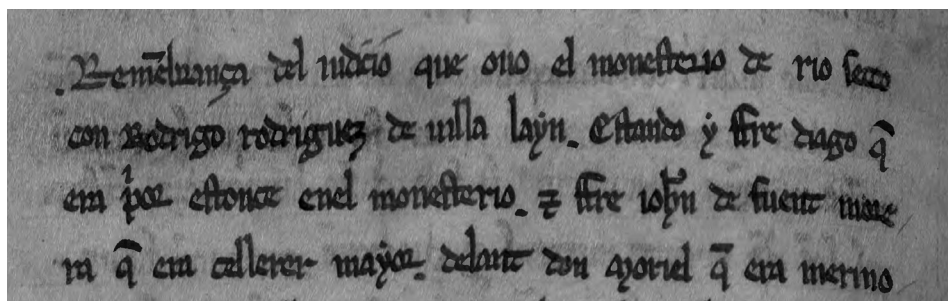 . Remẽbrança del iudicio que ouo el monesterio de rio seco
con Rodrigo rodriguez de uilla layn. Estando y ffre diago q̃
era p̲or estonce enel monesterio. ⁊ ffre ioħn de fuent more
ra q̃ era cellerer mayor. delant don moriel q̃ era merino